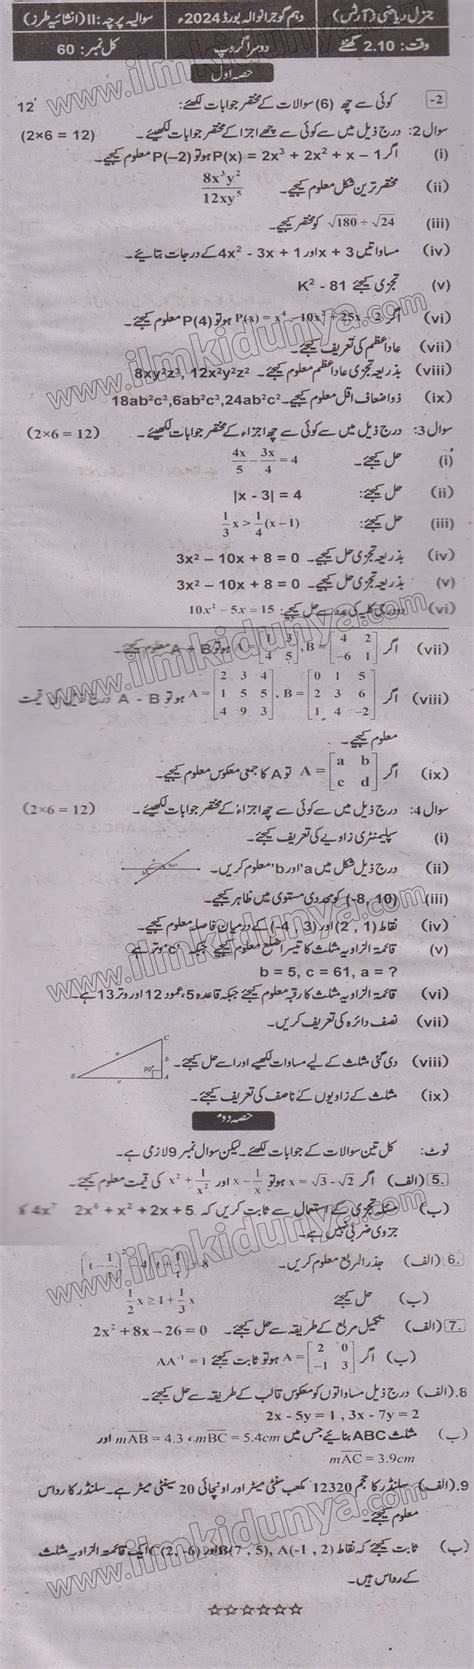 جنرل ریاضی (آرٹس) دہم گوجرانوالہ بورڈ 2024ء سوالیہ پرچہ: II (انشائیہ طرز)
وقت: 2.10 گھنٹے دوسرا گروپ کل نمبر: 60
حصہ اول
2- کوئی سے چھ (6) سوالات کے مختصر جوابات لکھئے: 12
سوال 2: درج ذیل میں سے کوئی سے چھ اجزا کے مختصر جوابات لکھئے۔ (2×6 = 12)
(i) اگر P(x) = 2x³ + 2x² + x − 1 ہو تو P(−2) معلوم کیجئے۔
(ii) مختصر ترین شکل معلوم کیجئے۔ 8x³y² / 12xy⁵
(iii) √180 ÷ √24 کو مختصر کیجئے۔
(iv) مساواتیں x + 3 اور 4x² - 3x + 1 کے درجات بتائیے۔
(v) تجزی کیجئے K² - 81
(vi) اگر P(x) = x⁴ − 10x³ + 25x − 3 ہو تو P(4) معلوم کیجئے۔
(vii) عاد اعظم کی تعریف کیجئے۔
(viii) بذریعہ تجزی عاد اعظم معلوم کیجئے۔ 8xy²z³, 12x²y²z²
(ix) ذواضعاف اقل معلوم کیجئے۔ 18ab²c³,6ab²c³,24ab²c²
سوال 3: درج ذیل میں سے کوئی سے چھ اجزاء کے مختصر جوابات لکھیئے۔ (2×6 = 12)
(i) حل کیجئے۔ 4x/5 − 3x/4 = 4
(ii) حل کیجئے: |x - 3| = 4
(iii) حل کیجئے: 1/3 x > 1/4 (x − 1)
(iv) بذریعہ تجزی حل کیجیے۔ 3x² − 10x + 8 = 0
(v) بذریعہ تجزی حل کیجئے۔ 3x² − 10x + 8 = 0
(vi) دو درجی کلیہ کی مدد سے حل کیجئے: 10x² − 5x = 15
(vii) اگر A = [1 3; 4 5], B = [4 2; −6 1] ہو تو A + B معلوم کیجئے۔
(viii) اگر A = [2 3 4; 1 5 5; 4 9 3], B = [0 1 5; 2 3 6; 1 4 −2] ہو تو A - B درج ذیل کی قیمت
معلوم کیجئے۔
(ix) اگر A = [a b; c d] تو A کا جمعی معکوس معلوم کیجیے۔
سوال 4: درج ذیل میں سے کوئی سے چھ اجزاء کے مختصر جوابات لکھیئے۔ (2×6 = 12)
(i) سپلیمنٹری زاویے کی تعریف کیجئے۔
(ii) درج ذیل شکل میں a' اور b' معلوم کریں۔
(iii) (-8, 10) کو محددی مستوی میں ظاہر کیجیے۔
(iv) نقاط (2 , 1) اور (-4 , 3) کے درمیان فاصلہ معلوم کیجئے۔
(v) قائمۃ الزاویہ مثلث کا تیسرا ضلع معلوم کیجئے جبکہ 'c' وتر ہے
b = 5, c = 61, a = ?
(vi) قائمۃ الزاویہ مثلث کا رقبہ معلوم کیجئے جبکہ قاعدہ 5، عمود 12 اور وتر 13 ہے۔
(vii) نصف دائرہ کی تعریف کریں۔
(viii) دی گئی مثلث کے لیے مساوات لکھیے اور اسے حل کیجئے۔
C
a b
90°
B c A
(ix) مثلث کے زاویوں کے ناصف کی تعریف کیجئے۔
حصہ دوم
نوٹ: کل تین سوالات کے جوابات لکھئے۔ لیکن سوال نمبر 9 لازمی ہے۔
5. (الف) اگر x = √3 - √2 ہو تو x − 1/x اور x² + 1/x² کی قیمت معلوم کیجئے۔
(ب) مسئلہ تجزی کے استعمال سے ثابت کریں کہ 2x⁶ + x² + 2x + 5 4x⁷
جزوی ضربی نہیں ہے۔
6. (الف) جذرالمربع معلوم کریں۔
(ب) حل کیجئے 1/2 x ≥ 1 + 1/3 x
7. (الف) تکمیل مربع کے طریقہ سے حل کیجئے۔ 2x² + 8x − 26 = 0
(ب) اگر A = [2 0; −1 3] ہو تو ثابت کیجئے AA⁻¹ = 1
8. (الف) درج ذیل مساواتوں کو معکوس قالب کے طریقہ سے حل کیجئے۔
2x - 5y = 1 , 3x - 7y = 2
(ب) مثلث ABC بنائیے جس میں mBC = 5.4cm ، mAB = 4.3 اور
mAC = 3.9cm
9. (الف) سلنڈر کا حجم 12320 مکعب سنٹی میٹر اور اونچائی 20 سینٹی میٹر ہے۔ سلنڈر کا رداس
معلوم کیجئے۔
(ب) ثابت کیجئے کہ نقاط A(-1 , 2), B(7 , 5) اور C(2, -6) ایک قائمۃ الزاویہ مثلث
کے رداس ہیں۔
☆☆☆☆☆☆
www.ilmkidunya.com